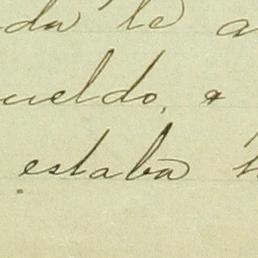 da le a
ueldo, a
estaba